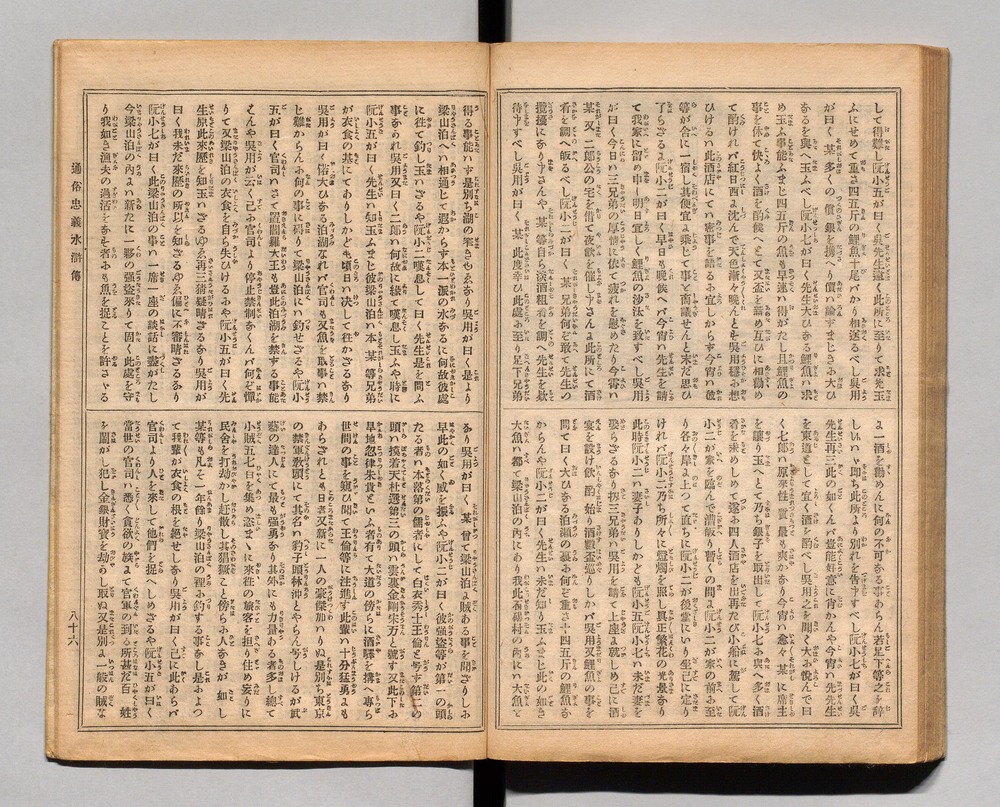 して得難し阮小五が曰く吳先生遠く此所に至りて求め玉
ふにせめて重さ四五斤の鯉魚十尾ばかり相送るべし吳用
が曰く某多くの價銀を携へたり價の論ずまじきあ大ひ
あるを與へ玉ふべし阮小七が曰く先生大ひある鯉魚の求
め玉ふ事能ふまじ四五斤の魚も早速に得がたし且鯉魚の
事を休て快よく酒を酌候へとて又盃を新め互ひに相勸め
て酌けれバ紅日西に沈んで天色漸々晩んとす吳用穩に想
ひけるハ此酒店にてハ密事を語るお宜しからず今宵ハ彼
等が舍に一宿し其便宜に乘じて事を商議せんと未だ思ひ
了らざるに阮小二が曰く早日も晩候へバ今宵ハ先生を請
て我家に留め申し明日宜しく鯉魚の沙汰を致すべし吳用
が曰く今日ハ三兄弟の厚情に依て疲れを慰めたり今霄ハ
某又二郎公の宅を借て夜飮を催し申さんよ此所にて酒
肴を調へ皈るべし阮小二が曰く某兄弟何ぞ敢て先生の
攪擾にあり申さんや某等自ら淡酒粗肴を調へ先生を欸
待申すべし吳用が曰く某此度あひ此處お至り足下兄弟
よ一酒を勸めんに何の不可ある事あらん若足下等之を辞
しあハゞ即ち此所より別れを告ますべし阮小七が曰く吳
先生再三此の如くんバ豈能好意に背かんや今宵ハ先生
を東道として宜く酒を酌べし吳用之を聞く大お悅んで曰
く七郎ハ原來性質最も爽かあり今宵ハ愈々某に席主
を讓り玉へとて乃ち銀子を取出して阮小二お與へ多く酒
肴を求めしめて遂お四人酒店を出再たび小船に駕して阮
小二が家を臨んで漕皈り暫くの間よ阮小二が家の前お至
り各々岸よ上つて直ちに阮小二が後堂にいり坐已に定り
けれバ阮小二乃ち所々に燈燭を照し眞正繁花の光景あり
此時阮小二ハ妻子ありしかども阮小五阮小七ハ未だ妻を
娶らざるあり扨三兄弟ハ吳用を請て上座よ就しめ已に酒
宴を設け飮酌始り酒數盃巡りしかバ吳用又鯉魚の事を
問て曰く大ひある泊湖の裏お何ぞ重さ十四五斤の鯉魚あ
からんや阮小二が曰く先生ハ未だ知り玉ふまじ此の如き
大魚ハ都て梁山泊の內にあり我此石碣村の內にハ大魚を
得る事能ハず是れ別ち湖の窄きゆゑあり吳用が曰く是より
梁山泊へハ相通じて遐からず本一派の水あるに何故彼處
に往て釣し玉ハざるや阮小二嘆息して曰く先生是を問ふ
事あかれ吳用又曰く二郎ハ何故に嘆息し玉ふや時に
阮小五が曰く先生ハ知玉ふまじ彼梁山泊ハ本某等兄弟
が衣食の基にてありしかども頃日ハ决して往かざるあり
吳用が曰く偌大ひある泊湖なれバ官司も又魚を取事ハ禁
じ難からんお何の事に碍りて梁山泊にハ釣せざるや阮小
五が曰く官司ハさて置閻羅大王も豈此泊湖を禁ずる事能
ハんや吳用が云く已お官司より停止禁制あくんバ何ぞ憚
りて又梁山泊の衣食を自ら失ひけるおや阮小五が曰く先
生原此來歷を知玉ハざるゆゑ再三猜疑晴ざるあり吳用が
曰く我未だ來歷の所以を知さるゆゑ偏に不審晴さるあり
阮小七が曰く此梁山泊の事ハ一席一座の談話に盡がたし
今梁山泊のうちハ新たに一夥の强盜來りて固く此處を守
り我如き漁夫の過活をあす者おも魚を捉ことを許さゞる
あり吳用が曰く某曾て梁山泊よ賊ある事を聞ざりしお
早此の如く威を振ふや阮小二が曰く彼强盜等が第一の頭
たる者ハ本落第の儒者にして白衣秀士王倫と号す第二の
頭ハ摸着天杜遷第三の頭ハ雲裏金剛宋万と號す又此下お
旱地忽律朱貴といふ者有て大道の傍らに酒驛を搆へ專ら
世間の事を窺ひ聞て王倫等に注進す此輩ハ十分猛勇よも
あらざれども日者又新に一人の豪傑加ハりぬ是別ち東京
の禁軍敎頭にて其名ハ豹子頭林沖とやらん号しけるが武
藝の達人にて最も强勇あり其外にも力量ある者多し總て
小賊五六七百を集め恣まゝに來往の旅客を担り住め妄りに
民舍を打劫かし赶散し其猖獗こと傍らお人あきが如し
某等も凡そ一年餘り梁山泊の裡お釣する事あし是おとつ
て我輩が衣食の根を絕せしあり吳用が曰く已に此あらバ
官司より人を來して他們を捉へしめざるや阮小五が曰く
當世の官司ハ悉く貪欲の族まて官軍の到る所甚だ百姓
を鬧がし犯し金銀財寶を劫めし取ぬ又是別よ一般の賊な
通俗忠義水滸傳
八十六